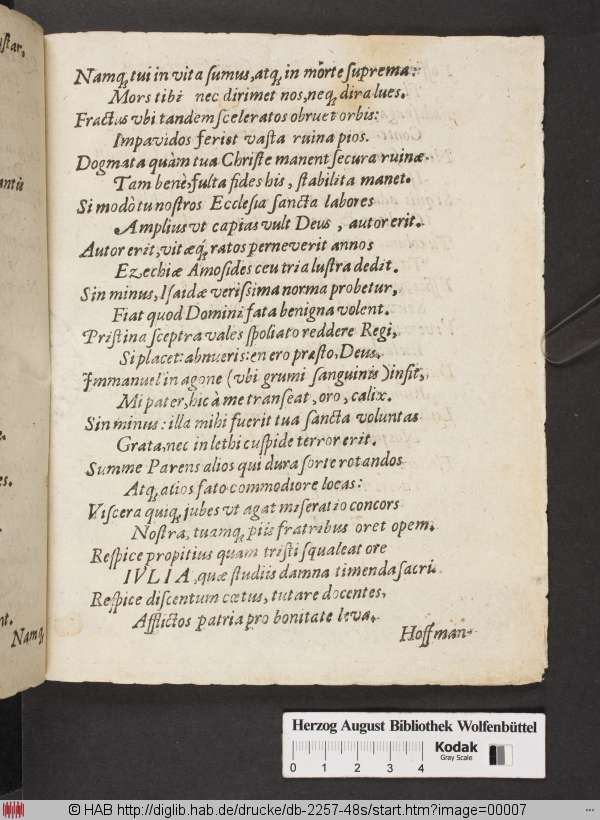 ustar,
antiũ
e.
es.
nt.
Namq́;
Namq́; tui in vita sumus, atq́; in mórte suprema:
Mors tibi nec dirimet nos, neq́; dira lues.
Fractus vbi tandem sceleratos obruet orbis:
Impavidos feriet vasta ruina pios.
Dogmata quàm tua Christe manent secura ruinæ.
Tam benè, fulta fides his, stabilita manet.
Si modò tu nostros Ecclesia sancta labores
Amplius vt capias vult Deus, autor erit.
Autor erit, vitæq́; ratos perneverit annos
Ezechiæ Amosides ceu tria lustra dedit.
Sin minus, Isaidæ verissima norma probetur,
Fiat quod Domini fata benigna volent.
Pristina sceptra vales spoliato reddere Regi,
Si placet: abnueris: en ero præsto, Deus.
Immanuel in agone (vbi grumi sanguinis) insit,
Mi pater, hic à me transeat, oro, calix.
Sin minus: illa mihi fuerit tua sancta voluntas
Grata, nec in lethi cuspide terror erit.
Summe Parens alios qui dura sorte rotandos
Atq́; alios fato commodiore locas:
Viscera quiq́; jubes vt agat miseratio concors
Nostra, tuamq́; piis fratribus oret opem.
Respice propitius quam tristi squaleat ore
IVLIA, quæ studiis damna timenda sacris
Respice discentum cœtus, tutare docentes,
Afflictos patria pro bonitate leva.
Hoffman-
Herzog August Bibliothek Wolfenbüttel
0 1 2 3 4
Kodak
Gray Scale
© HAB http://diglib.hab.de/drucke/db-2257-48s/start.htm?image=00007